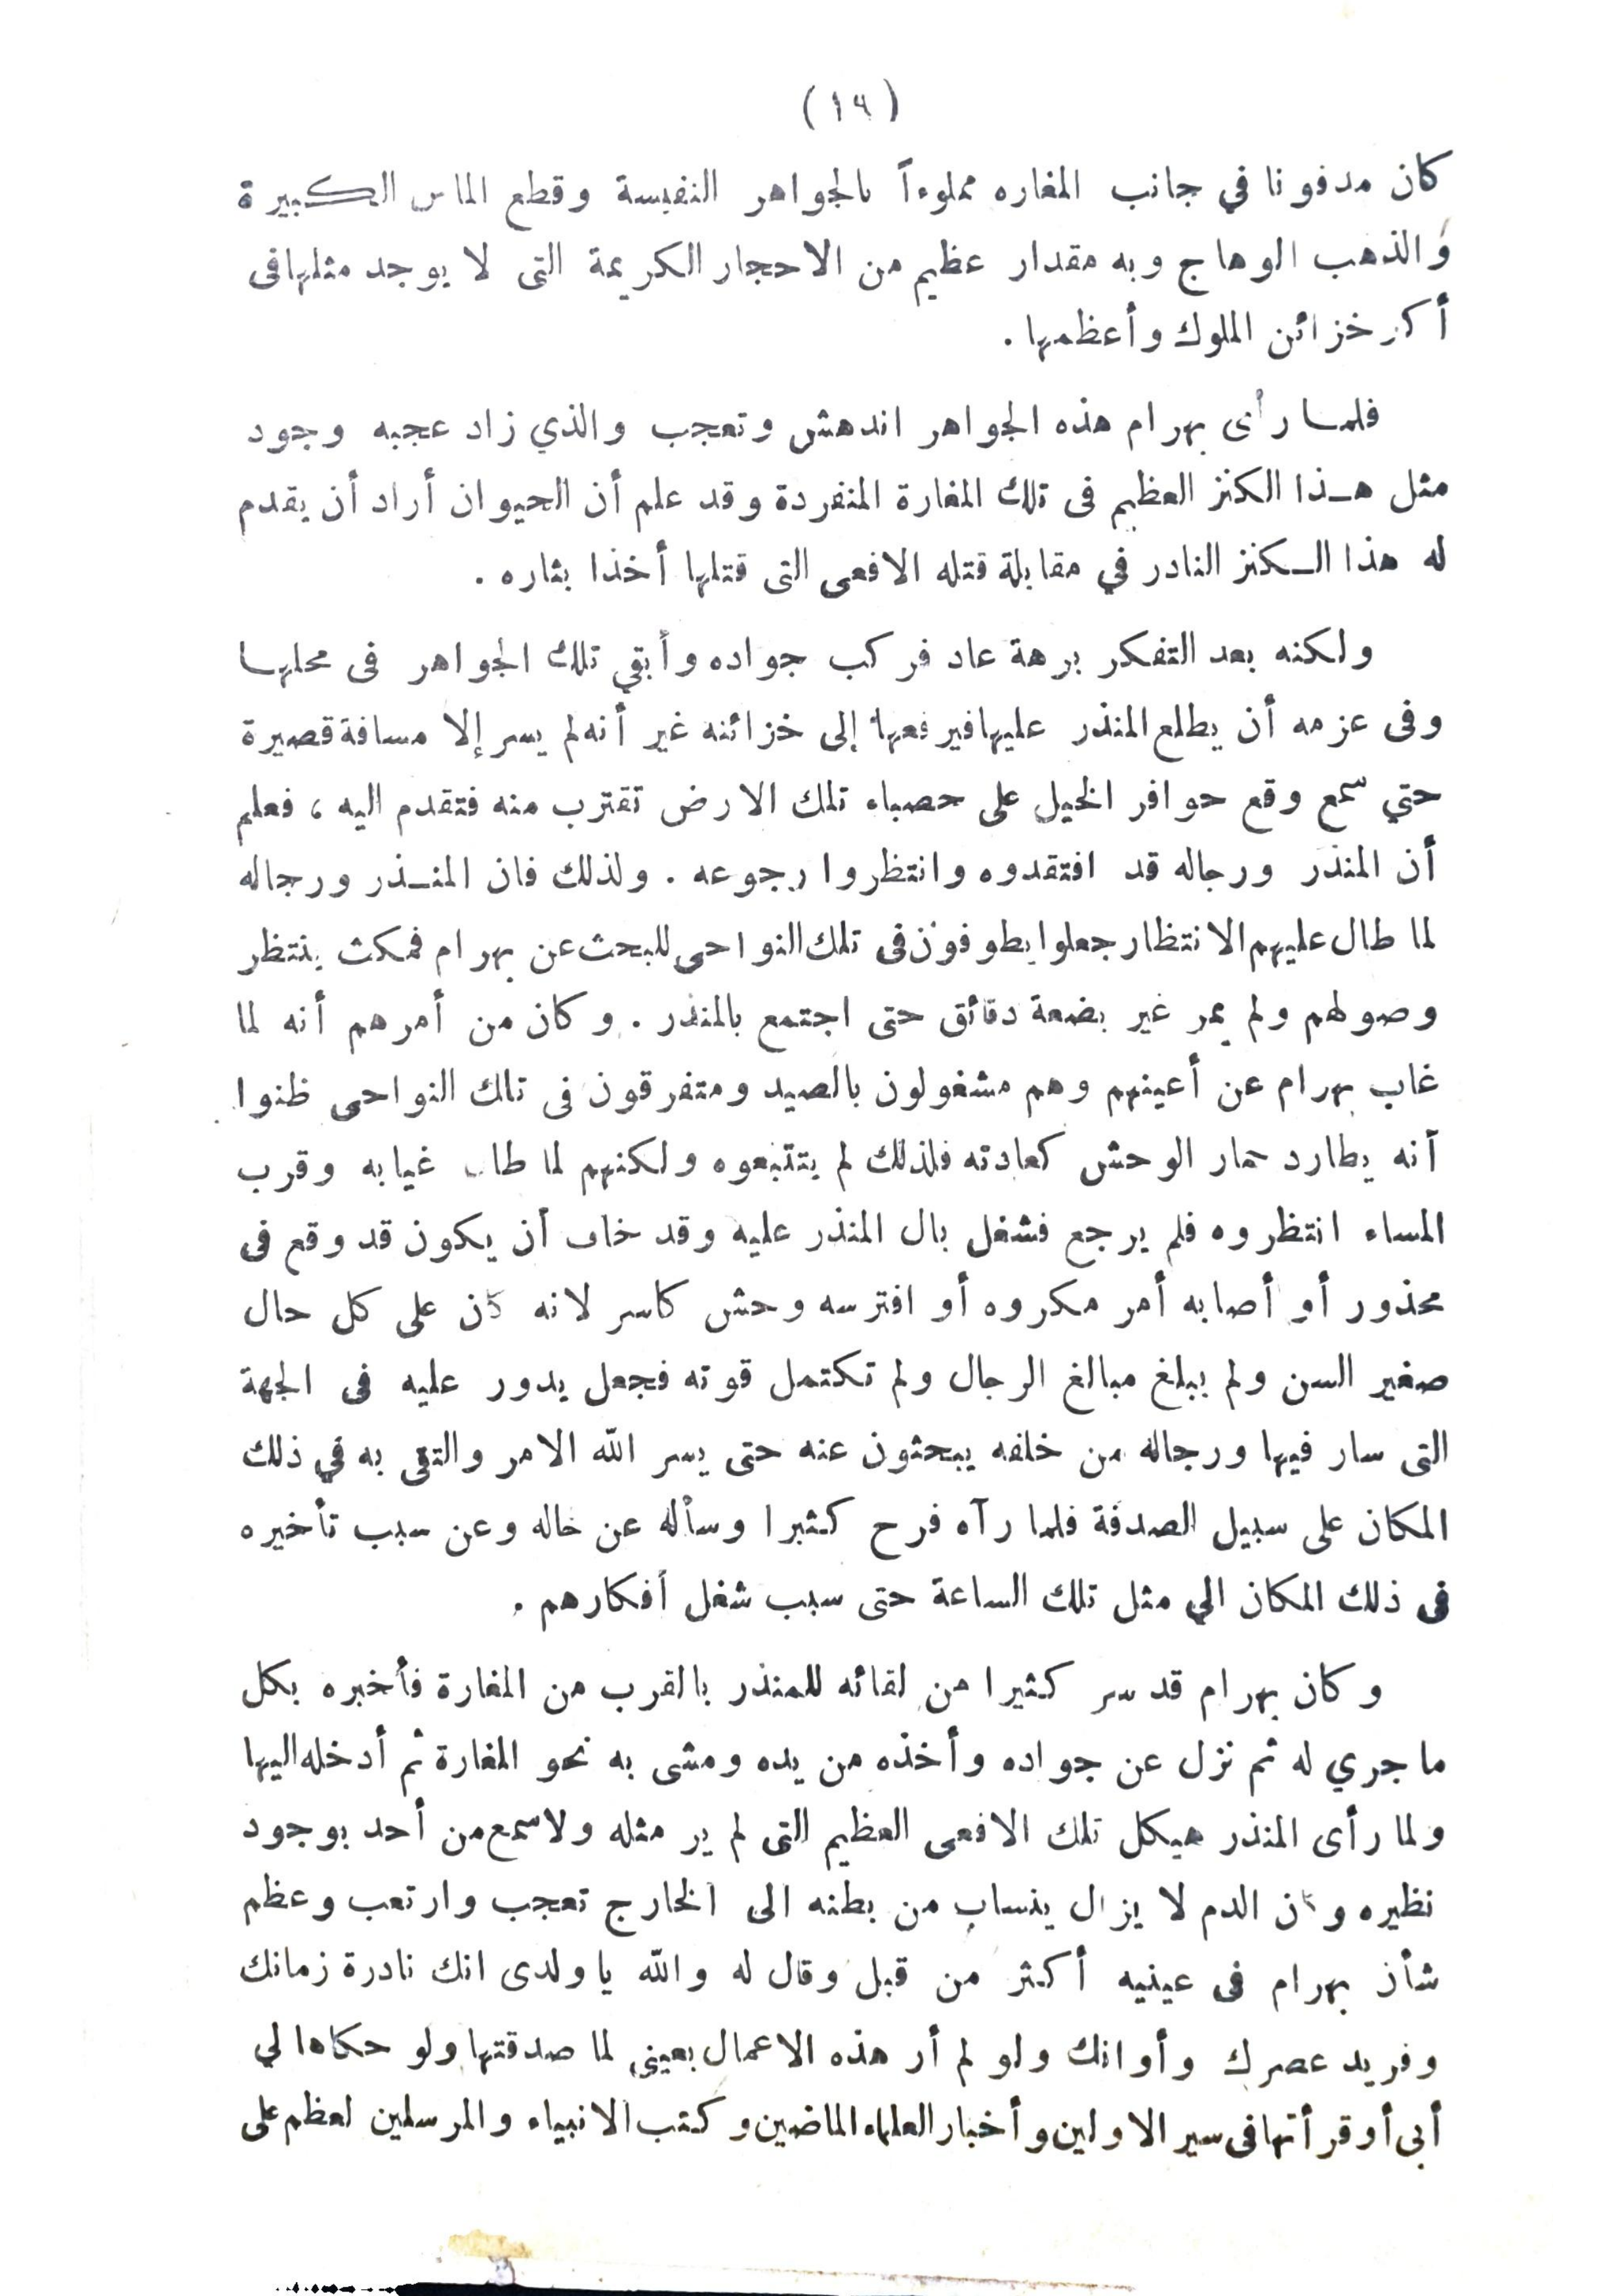 (١٩)
كان مدفونا في جانب المغاره مملوءاً بالجواهر النفيسة وقطع الماس الكبيرة
والذهب الوهاج وبه مقدار عظيم من الاحجار الكريمة التى لا يوجد مثلها فى
أكبر خزائن الملوك وأعظمها .
فلما رأى بهرام هذه الجواهر اندهش وتعجب والذي زاد عجبه وجود
مثل هذا الكنز العظيم فى تلك المغارة المنفردة وقد علم أن الحيوان أراد أن يقدم
له هذا الكنز النادر في مقابلة قتله الافعى التى قتلها أخذا بثاره .
ولكنه بعد التفكر برهة عاد فركب جواده وأبقي تلك الجواهر فى محلها
وفى عزمه أن يطلع المنذر عليها فيرفعها إلى خزائنه غير أنه لم يسر إلا مسافة قصيرة
حتي سمع وقع حوافر الخيل على حصباء تلك الارض تقترب منه فتقدم اليه ، فعلم
أن المنذر ورجاله قد افتقدوه وانتظروا رجوعه . ولذلك فان المنذر ورجاله
لما طال عليهم الانتظار جعلوا يطوفون فى تلك النواحى للبحث عن بهرام فمكث ينتظر
وصولهم ولم يمر غير بضعة دقائق حتى اجتمع بالمنذر . وكان من أمرهم أنه لما
غاب بهرام عن أعينهم وهم مشغولون بالصيد ومتفرقون فى تلك النواحى ظنوا
أنه يطارد حمار الوحش كعادته فلذلك لم يتتبعوه ولكنهم لما طال غيابه وقرب
المساء انتظروه فلم يرجع فشغل بال المنذر عليه وقد خاف أن يكون قد وقع فى
محذور أو أصابه أمر مكروه أو افترسه وحش كاسر لانه كان على كل حال
صغير السن ولم يبلغ مبالغ الرجال ولم تكتمل قوته فجعل يدور عليه فى الجهة
التى سار فيها ورجاله من خلفه يبحثون عنه حتى يسر الله الامر والتقى به في ذلك
المكان على سبيل الصدفة فلما رآه فرح كثيرا وسأله عن حاله وعن سبب تأخيره
فى ذلك المكان الي مثل تلك الساعة حتى سبب شغل أفكارهم .
وكان بهرام قد سر كثيرا من لقائه للمنذر بالقرب من المغارة فأخبره بكل
ما جري له ثم نزل عن جواده وأخذه من يده ومشى به نحو المغارة ثم أدخله اليها
ولما رأى المنذر هيكل تلك الافعى العظيم التى لم ير مثله ولا سمع من أحد بوجود
نظيره وكان الدم لا يزال ينساب من بطنه الى الخارج تعجب وارتعب وعظم
شأن بهرام فى عينيه أكثر من قبل وقال له والله يا ولدى انك نادرة زمانك
وفريد عصرك وأوانك ولو لم أر هذه الاعمال بعينى لما صدقتها ولو حكاها لي
أبى أو قرأتها فى سير الاولين وأخبار العلماء الماضين وكتب الانبياء والمرسلين لعظم على